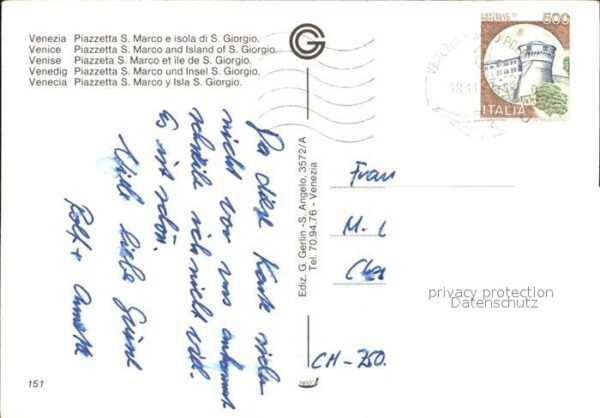 Venezia Piazzetta S. Marco e isola di S. Giorgio.
Venice Piazzetta S. Marco and Island of S. Giorgio.
Venise Piazzeta S. Marco et île de S. Giorgio.
Venedig Piazzetta S. Marco und Insel S. Giorgio.
Venecia Piazzetta S. Marco y Isla S. Giorgio.
G
CASTELLO DI
ROVERETO
500
ITALIA
Da diese Karte sicher
nicht vor uns ankommt
schreibe ich nicht viel.
Es ist schön.
Viele liebe Grüsse
Rolf + Annette
Ediz. G. Gerlin - S. Angelo, 3572/A
Tel. 70.94.76 - Venezia
Frau
M.
CH-750
privacy protection
Datenschutz
151